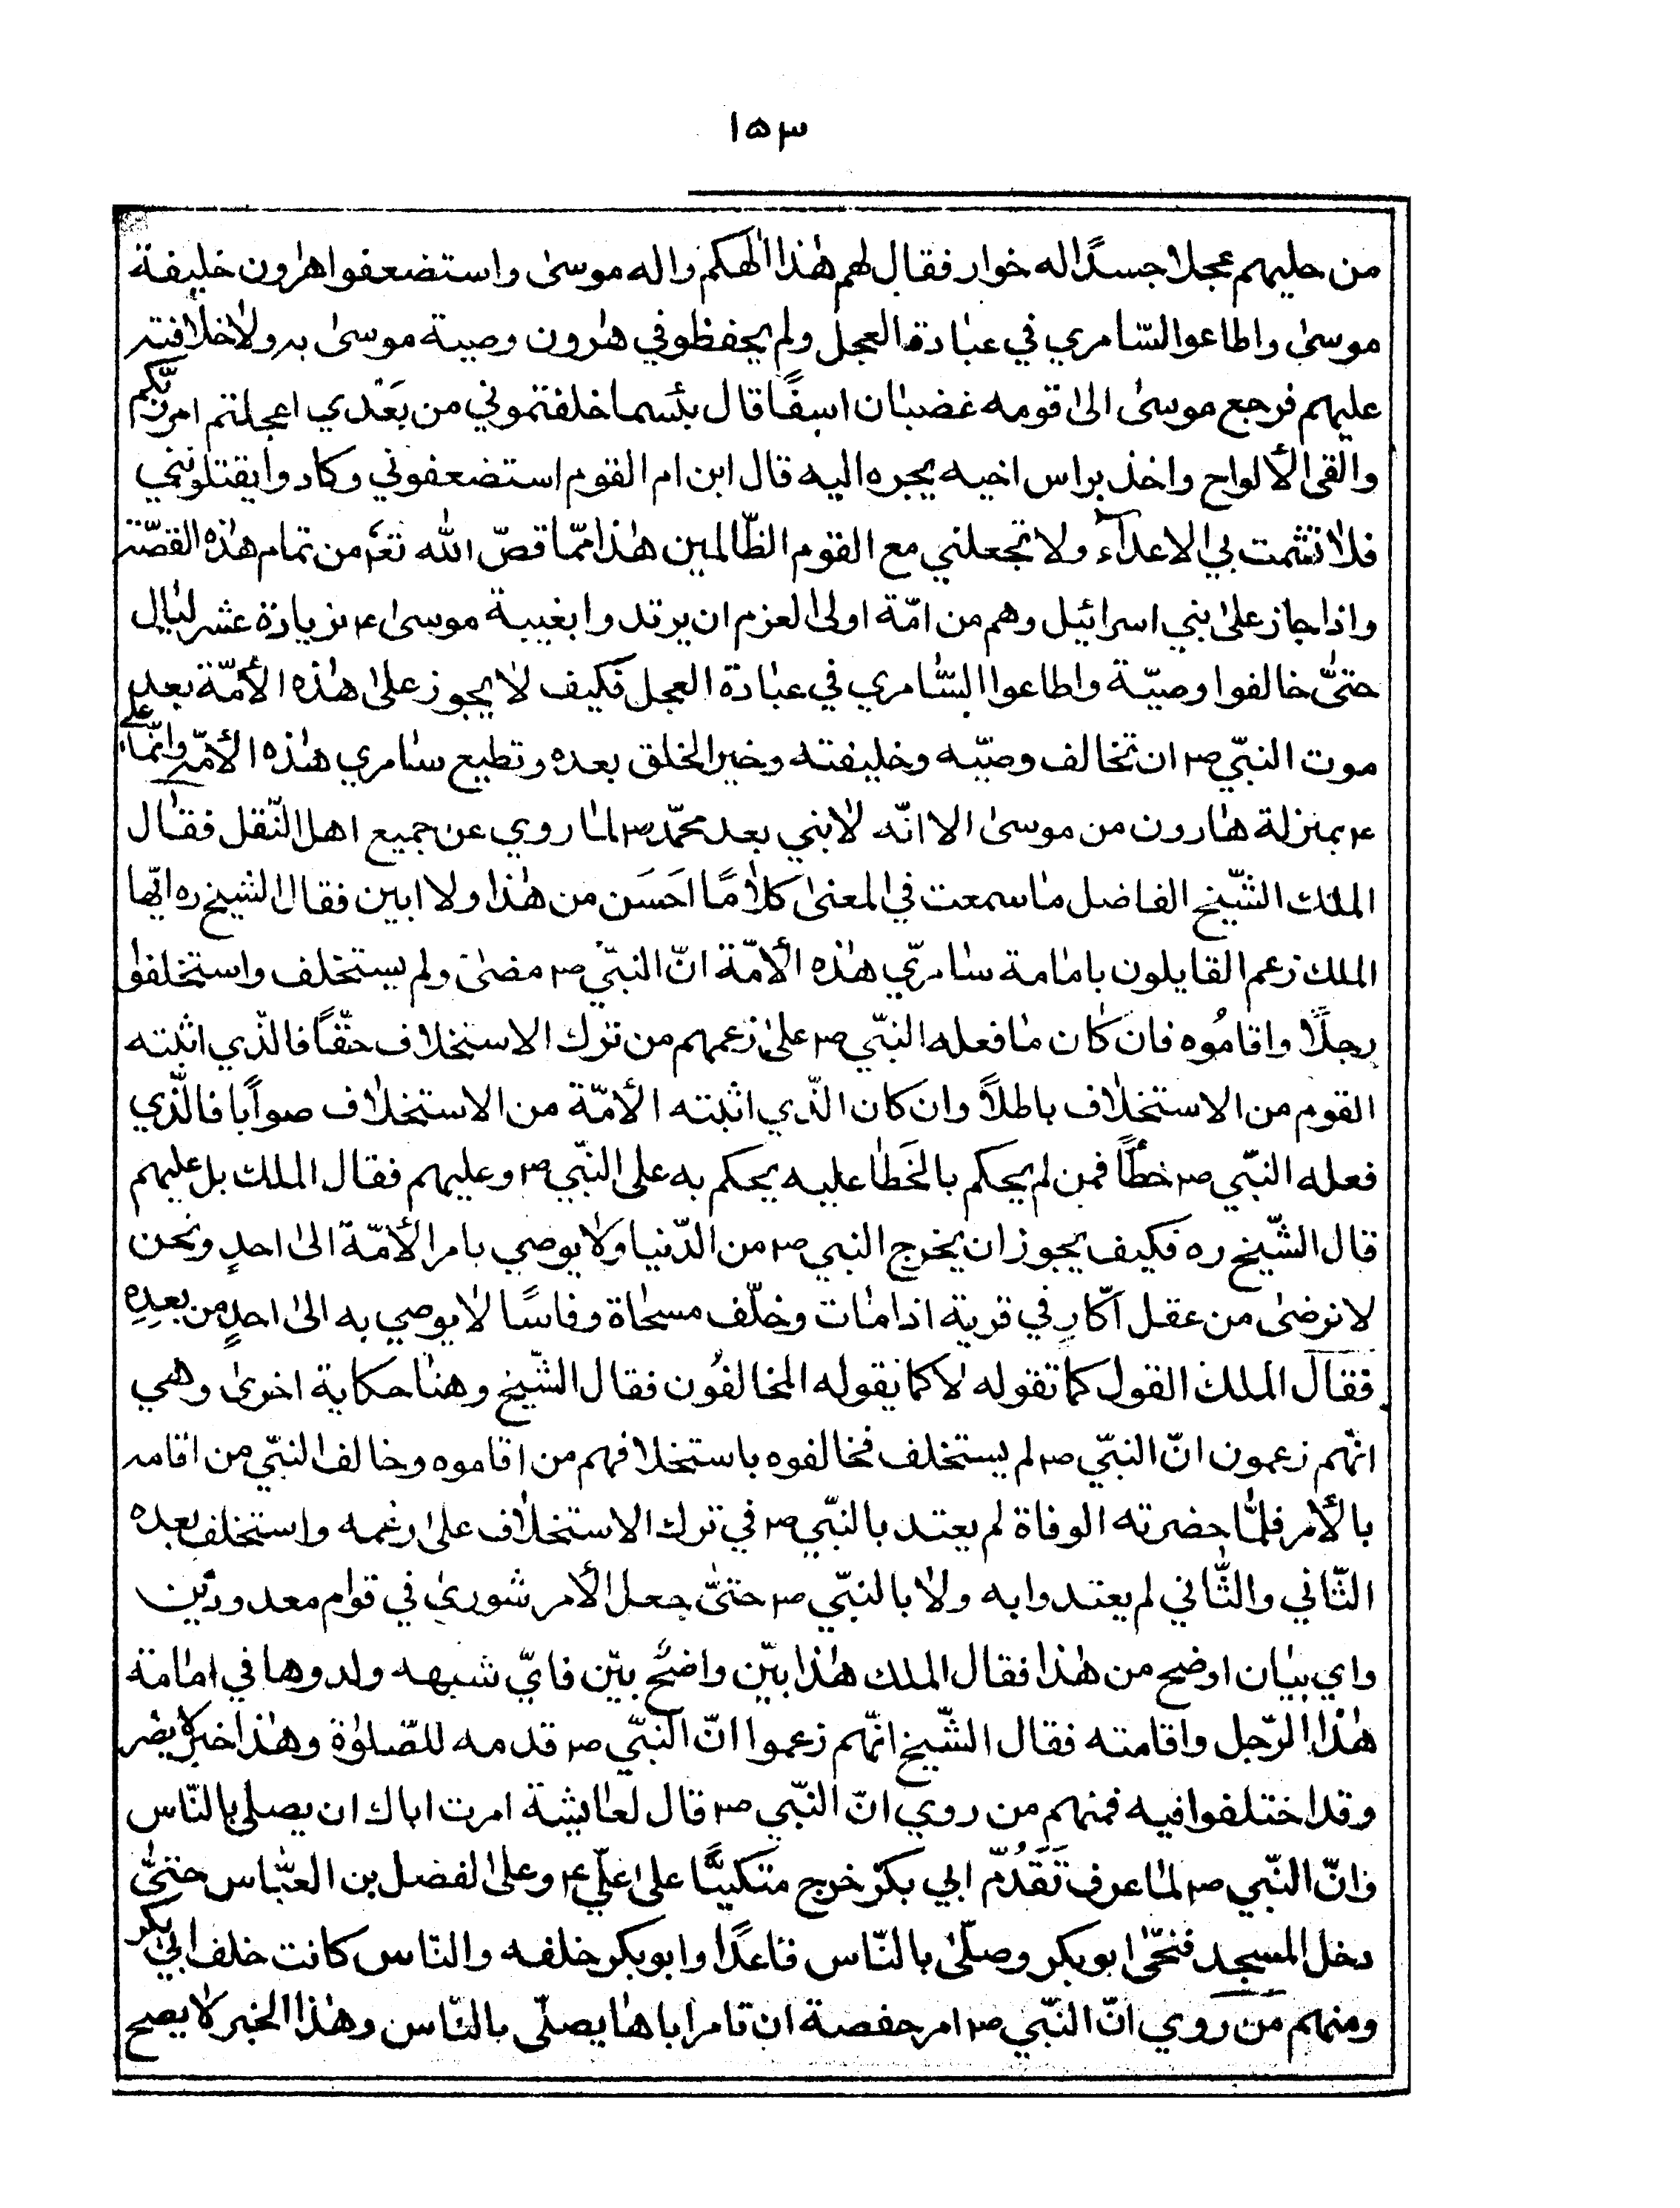 ١٥٣
من حليهم عجلا جسدًا له خوار فقال لهم هٰذا الٰهكم واله موسىٰ واستضعفوا هٰرون خليفة
موسىٰ واطاعوا السّامري في عبٰادة العجل ولم يحفظو في هٰرون وصية موسىٰ به ولا خلافته
عليهم فرجع موسىٰ الىٰ قومه غضبٰان اسِفًا قال بئسما خلفتموني من بَعْدي اعجلتم امر ربّكم
والقى الألواح واخذ براس اخيه يجره اليه قال ابن ام القوم استضعفوني وكادوا يقتلونني
فلا تشمت بي الاعدآء ولا تجعلني مع القوم الظّالمين هٰذا ممّا قصّ الله تعٰ من تمام هٰذه القصّة
واذا جاز علىٰ بني اسرائيل وهم من امّة اولى العزم ان يرتدوا بغيبة موسىٰ ع بزيادة عشر ليٰال
حتىّٰ خالفوا وصيّة واطاعوا السّٰامري في عبٰادة العجل فَكيف لا يجوز علىٰ هٰذه الأمّة بعد
موت النبّي ص ان تخالف وصيّه وخليفته وخير الخلق بعده وتطيع سٰامري هٰذه الأمّة وانّما علي
ع بمنزلة هٰارون من موسىٰ الا انّه لا نبي بعد محمّد ص لمٰا روي عن جميع اهل النّقل فقٰال
الملك الشّيخ الفاضل مٰا سمعت في المعنىٰ كلاٰمًا احَسَن من هٰذا ولا ابين فقال الشيخ ره ايّها
الملك زعم القايلون بامٰامة سٰامريّ هٰذه الأمّة انّ النبّي ص مضىٰ ولم يستخلف واستخلفوا
رجلًا واقامُوه فان كٰان مٰا فعله النبّي ص علىٰ زعمهم من ترك الاستخلاف حقّاً فالّذي اثبته
القوم من الاستخلاٰف باطلاً وان كان الّذي اثبته الأمّة من الاستخلاٰف صواًبا فالّذي
فعله النبّي ص خطًأ فمن لم يحكم بالخَطأ عليه يحكم به على النبّي ص وعليهم فقال الملك بل عليهم
قال الشّيخ ره فَكيف يجوز ان يخرج النبي ص من الدّنيا وَلا يوصي بامر الأمّة الىٰ احدٍ ونحن
لا نرضىٰ من عقل اكّارٍ في قرية اذا مٰات وخلّف مسحٰاة وفاسًا لا يوصي به الىٰ احدٍ من بعدِهِ
فقال الملك القول كما تقوله لا كما يقوله المخالفُون فقال الشّيخ وهنٰا حكاية اخرىٰ وهي
انّهم زعمون انّ النبّي ص لم يستخلف فخالفوه باستخلافهم من اقاموه وخالف النبّي من اقامه
بالأمر فلمّا حضرته الوفاة لم يعتد بالنبّي ص في ترك الاستخلاٰف علىٰ رغمه واستخلف بعده
الثّاني والثّاني لم يعتدوا به ولا بالنبّي ص حتىّٰ جعل الأمر شورىٰ في قوٰم معدودين
واي بيٰان اوضح من هٰذا فقال الملك هٰذا بيّن واضحٌ بيّن فايّ شبهه ولدوها في امٰامة
هٰذا الرّجل واقامته فقال الشّيخ انّهم زعموا انّ النبّي ص قدمه للصّلوٰة وهٰذا خبر لا يصّر
وقد اختلفوا فيه فمنهم من روي انّ النبّي ص قال لعٰايشة امرت اباك ان يصلي بالنّاس
وانّ النبّي ص لمٰا عرف تَقَدُمّ ابي بكر خرج متكيًّا علىٰ عليّ ع وعلىٰ لفضل بن العبّاس حتىّٰ
دخل المسجد فنحّىٰ ابو بكر وصلّىٰ بالنّاس قاعدًا وابو بكر خلفه والنّاس كانت خلف ابي بكر
ومنهم من روي انّ النبّي ص امر حفصة ان تامر اباهٰا يصلّي بالنّاس وهٰذا الخبر لا يصح